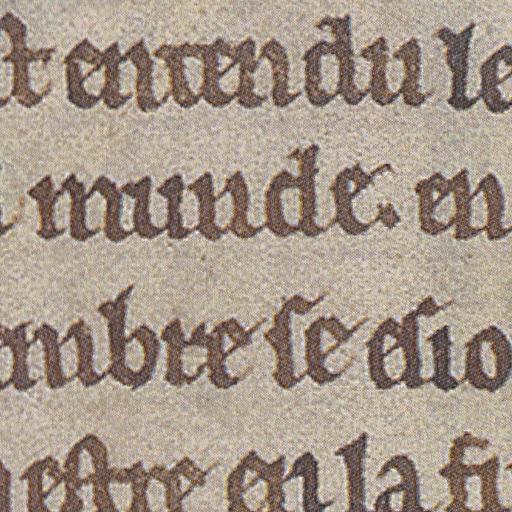 st entendu le
munde. en
anbre se esio
estre en la fi